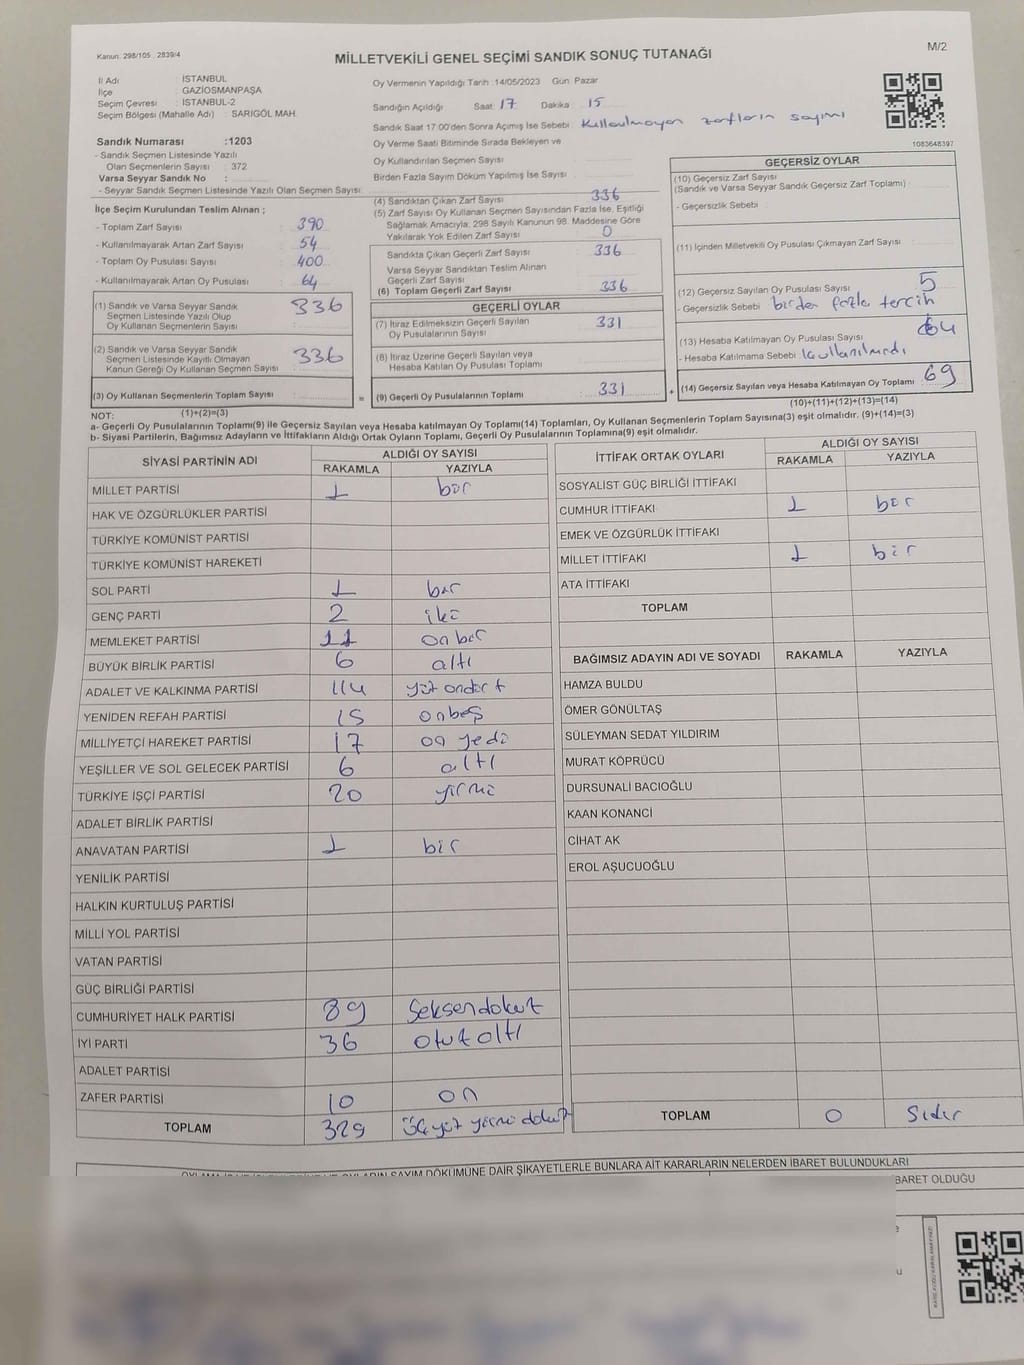 Kanun: 298/105 2839/4
MİLLETVEKİLİ GENEL SEÇİMİ SANDIK SONUÇ TUTANAĞI
M/2
İl Adı : İSTANBUL
İlçe : GAZİOSMANPAŞA
Seçim Çevresi : İSTANBUL-2
Seçim Bölgesi (Mahalle Adı) : SARIGÖL MAH.
Sandık Numarası :1203
- Sandık Seçmen Listesinde Yazılı
Olan Seçmenlerin Sayısı : 372
Varsa Seyyar Sandık No :
- Seyyar Sandık Seçmen Listesinde Yazılı Olan Seçmen Sayısı:
Oy Vermenin Yapıldığı Tarih :14/05/2023 Gün: Pazar
Sandığın Açıldığı Saat 17 Dakika : 15
Sandık Saat 17:00'den Sonra Açılmış İse Sebebi Kullanılmayan zarfların sayımı
Oy Verme Saati Bitiminde Sırada Bekleyen ve
Oy Kullandırılan Seçmen Sayısı
Birden Fazla Sayım Döküm Yapılmış İse Sayısı
1083648397
İlçe Seçim Kurulundan Teslim Alınan ;
- Toplam Zarf Sayısı : 390
- Kullanılmayarak Artan Zarf Sayısı : 54
- Toplam Oy Pusulası Sayısı : 400
- Kullanılmayarak Artan Oy Pusulası : 64
(1) Sandık ve Varsa Seyyar Sandık
Seçmen Listesinde Yazılı Olup
Oy Kullanan Seçmenlerin Sayısı : 336
(2) Sandık ve Varsa Seyyar Sandık
Seçmen Listesinde Kayıtlı Olmayan
Kanun Gereği Oy Kullanan Seçmen Sayısı : 336
(3) Oy Kullanan Seçmenlerin Toplam Sayısı :
(4) Sandıktan Çıkan Zarf Sayısı : 336
(5) Zarf Sayısı Oy Kullanan Seçmen Sayısından Fazla İse, Eşitliği
Sağlamak Amacıyla, 298 Sayılı Kanunun 98. Maddesine Göre
Yakılarak Yok Edilen Zarf Sayısı : 0
Sandıkta Çıkan Geçerli Zarf Sayısı : 336
Varsa Seyyar Sandıktan Teslim Alınan
Geçerli Zarf Sayısı
(6) Toplam Geçerli Zarf Sayısı : 336
GEÇERLİ OYLAR
(7) İtiraz Edilmeksizin Geçerli Sayılan
Oy Pusulalarının Sayısı : 331
(8) İtiraz Üzerine Geçerli Sayılan veya
Hesaba Katılan Oy Pusulası Toplamı
= (9) Geçerli Oy Pusulalarının Toplamı : 331 +
GEÇERSİZ OYLAR
(10) Geçersiz Zarf Sayısı
(Sandık ve Varsa Seyyar Sandık Geçersiz Zarf Toplamı) :
- Geçersizlik Sebebi :
(11) İçinden Milletvekili Oy Pusulası Çıkmayan Zarf Sayısı
(12) Geçersiz Sayılan Oy Pusulası Sayısı : 5
- Geçersizlik Sebebi : birden fazla tercih
(13) Hesaba Katılmayan Oy Pusulası Sayısı : 64
- Hesaba Katılmama Sebebi : kullanılmadı
(14) Geçersiz Sayılan veya Hesaba Katılmayan Oy Toplamı : 69
NOT: (1)+(2)=(3)
(10)+(11)+(12)+(13)=(14)
a- Geçerli Oy Pusulalarının Toplamı(9) ile Geçersiz Sayılan veya Hesaba katılmayan Oy Toplamı(14) Toplamları, Oy Kullanan Seçmenlerin Toplam Sayısına(3) eşit olmalıdır. (9)+(14)=(3)
b- Siyasi Partilerin, Bağımsız Adayların ve İttifakların Aldığı Ortak Oyların Toplamı, Geçerli Oy Pusulalarının Toplamına(9) eşit olmalıdır.
SİYASİ PARTİNİN ADI ALDIĞI OY SAYISI
RAKAMLA YAZIYLA
MİLLET PARTİSİ 1 bir
HAK VE ÖZGÜRLÜKLER PARTİSİ
TÜRKİYE KOMÜNİST PARTİSİ
TÜRKİYE KOMÜNİST HAREKETİ
SOL PARTİ 1 bir
GENÇ PARTİ 2 iki
MEMLEKET PARTİSİ 11 onbir
BÜYÜK BİRLİK PARTİSİ 6 altı
ADALET VE KALKINMA PARTİSİ 114 yüz ondört
YENİDEN REFAH PARTİSİ 15 onbeş
MİLLİYETÇİ HAREKET PARTİSİ 17 on yedi
YEŞİLLER VE SOL GELECEK PARTİSİ 6 altı
TÜRKİYE İŞÇİ PARTİSİ 20 yirmi
ADALET BİRLİK PARTİSİ
ANAVATAN PARTİSİ 1 bir
YENİLİK PARTİSİ
HALKIN KURTULUŞ PARTİSİ
MİLLİ YOL PARTİSİ
VATAN PARTİSİ
GÜÇ BİRLİĞİ PARTİSİ
CUMHURİYET HALK PARTİSİ 89 Seksendokuz
İYİ PARTİ 36 otuz altı
ADALET PARTİSİ
ZAFER PARTİSİ 10 on
TOPLAM 329 Üçyüz yirmi dokuz
İTTİFAK ORTAK OYLARI ALDIĞI OY SAYISI
RAKAMLA YAZIYLA
SOSYALİST GÜÇ BİRLİĞİ İTTİFAKI
CUMHUR İTTİFAKI 1 bir
EMEK VE ÖZGÜRLÜK İTTİFAKI
MİLLET İTTİFAKI 1 bir
ATA İTTİFAKI
TOPLAM
BAĞIMSIZ ADAYIN ADI VE SOYADI RAKAMLA YAZIYLA
HAMZA BULDU
ÖMER GÖNÜLTAŞ
SÜLEYMAN SEDAT YILDIRIM
MURAT KÖPRÜCÜ
DURSUNALİ BACIOĞLU
KAAN KONANCİ
CİHAT AK
EROL AŞUCUOĞLU
TOPLAM 0 Sıfır
SAYIM DÖKÜMÜNE DAİR ŞİKAYETLERLE BUNLARA AİT KARARLARIN NELERDEN İBARET BULUNDUKLARI
BARET OLDUĞU